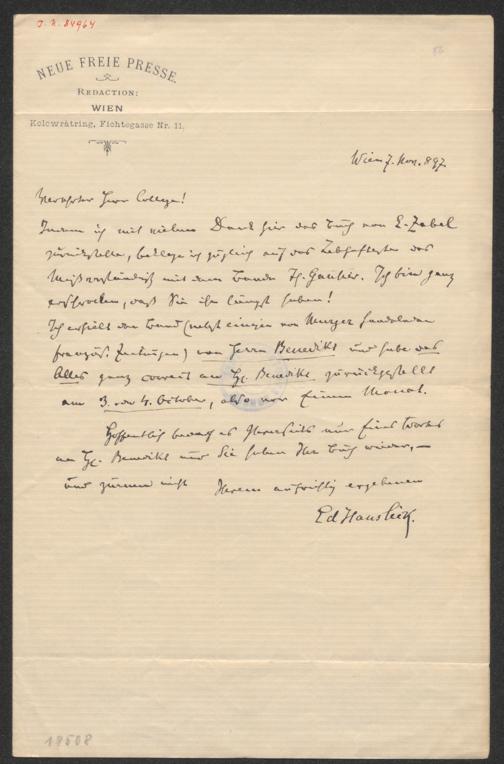 J. N. 84964
NEUE FREIE PRESSE.
REDACTION:
WIEN
Kolowratring, Fichtegasse Nr. 11.
Wien 7. Nov. 897.
Verehrter Herr College!
Indem ich mit vielem Dank hier das Buch von E. Zabel
zurückstelle, beklage ich zugleich auf das Lebhafteste das
Mißverständniß mit dem Bande Th. Gautier. Ich bin ganz
erschrocken, daß Sie ihn längst haben!
Ich erhielt den Band (nebst einigen von Murger handelnden
französ. Zeitungen) von Herrn Benedikt und habe das
Alles ganz correct an H. Benedikt zurückgestellt
am 3. oder 4. October, also vor Einem Monat.
Hoffentlich bedarf es Ihrerseits nur Eines Wortes
an H. Benedikt und Sie haben Ihr Buch wieder, —
und zürnen nicht Ihrem aufrichtig ergebenen
Ed Hanslick.
18508